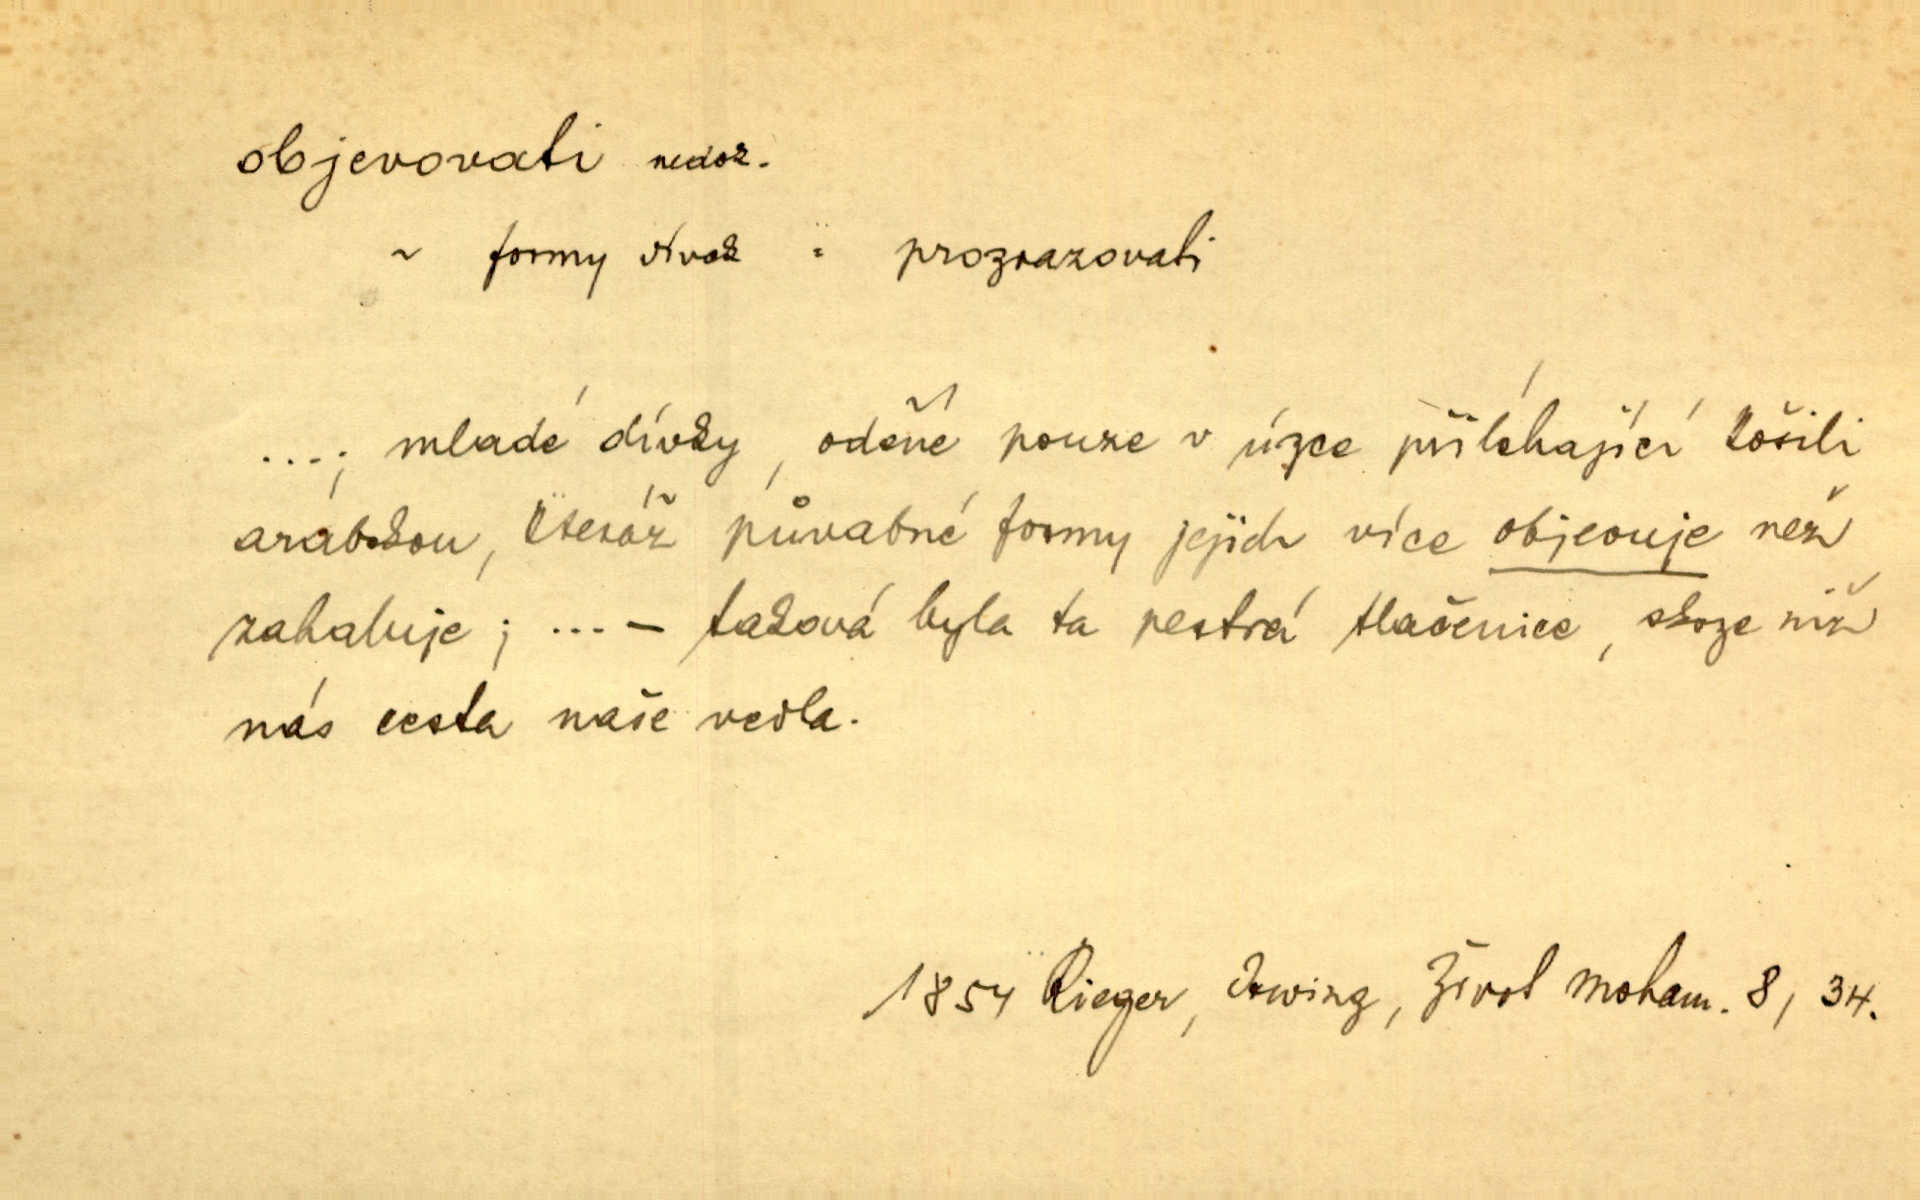 objevovati nedok.
~ formy dívek = prozrazovati
...; mladé dívky, oděné pouze v úzce přiléhající košili
arabskou, kteráž půvabné formy jejich více objevuje než
zahaluje; ... – taková byla ta pestrá tlačenice, skoze niž
nás cesta naše vedla.
1854 Rieger, Irwing, Život Moham. 8, 34.